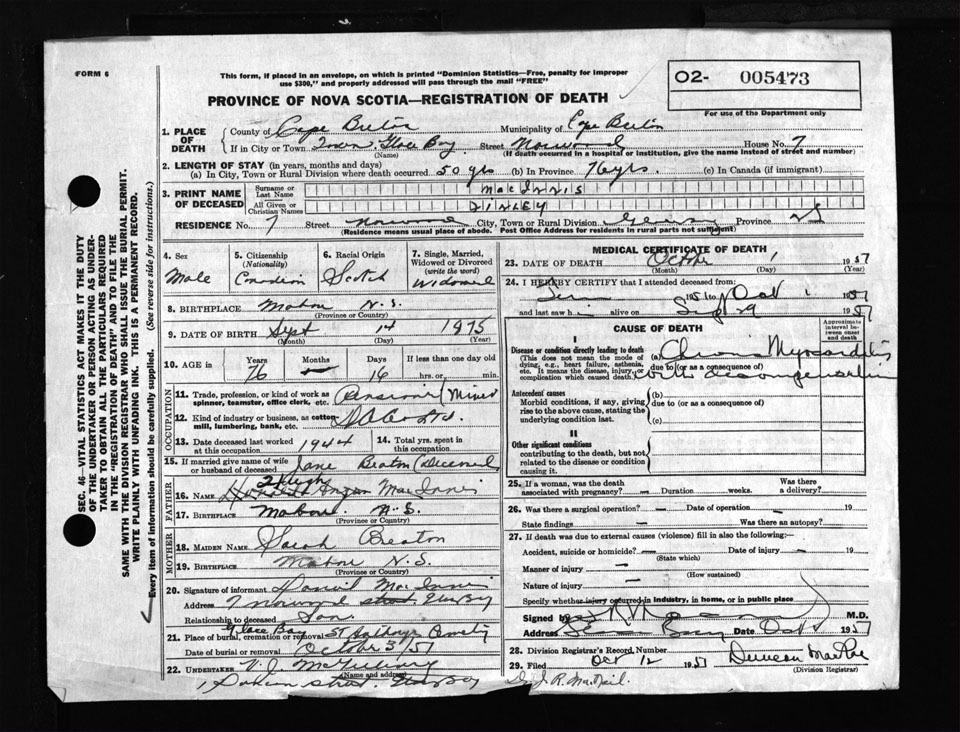 FORM 6
This form, if placed in an envelope, on which is printed "Dominion Statistics—Free, penalty for improper
use $300," and properly addressed will pass through the mail "FREE"
O2- 005473
For use of the Department only
PROVINCE OF NOVA SCOTIA—REGISTRATION OF DEATH
1. PLACE OF DEATH
County of Cape Breton Municipality of Cape Breton
If in City or Town Town Glace Bay Street Norwood House No. 7
(Name) (If death occurred in a hospital or institution, give the name instead of street and number)
2. LENGTH OF STAY (in years, months and days)
(a) In City, Town or Rural Division where death occurred 50 yrs (b) In Province 76 yrs. (c) In Canada (if immigrant)
3. PRINT NAME OF DECEASED
Surname or Last Name MacINNIS
All Given or Christian Names
RESIDENCE No. 7 Street Norwood City, Town or Rural Division Province N S
(Residence means usual place of abode. Post Office Address for residents in rural parts not sufficient)
4. Sex Male
5. Citizenship (Nationality) Canadian
6. Racial Origin Scotch
7. Single, Married, Widowed or Divorced (write the word) Widowed
8. BIRTHPLACE Mabou N.S.
(Province or Country)
9. DATE OF BIRTH Sept 14 1875
(Month) (Day) (Year)
10. AGE in Years 76 Months — Days 16 If less than one day old hrs. or min.
OCCUPATION
11. Trade, profession, or kind of work as spinner, teamster, office clerk, etc. Pensioner (Miner)
12. Kind of industry or business, as cotton-mill, lumbering, bank, etc.
13. Date deceased last worked at this occupation 1944
14. Total yrs. spent in this occupation
15. If married give name of wife or husband of deceased Jane Beaton (Deceased)
FATHER
16. Name Angus MacInnis
17. Birthplace Mabou N.S.
(Province or Country)
MOTHER
18. Maiden Name Sarah Beaton
19. Birthplace Mabou N.S.
(Province or Country)
20. Signature of informant MacInnis
Address 7 Norwood street Glace Bay
Relationship to deceased Son
21. Place of burial, cremation or removal Glace Bay St Anthonys Cemetery
Date of burial or removal October 3/51
22. UNDERTAKER V. J. McGillivary
(Name and address)
Glace Bay
MEDICAL CERTIFICATE OF DEATH
23. DATE OF DEATH October 1 1951
(Month) (Day) (Year)
24. I HEREBY CERTIFY that I attended deceased from:
1951 to Oct 1 1951
and last saw h alive on Sept 29 1951
CAUSE OF DEATH
Approximate interval between onset and death
I
Disease or condition directly leading to death
(This does not mean the mode of dying, e.g., heart failure, asthenia, etc. It means the disease, injury, or complication which caused death.)
(a) Chronic Myocarditis
due to (or as a consequence of)
with decompensation
Antecedent causes
Morbid conditions, if any, giving rise to the above cause, stating the underlying condition last.
(b)
due to (or as a consequence of)
(c)
II
Other significant conditions
contributing to the death, but not related to the disease or condition causing it.
25. If a woman, was the death associated with pregnancy? — Duration weeks. Was there a delivery?
26. Was there a surgical operation? — Date of operation — 19
State findings — Was there an autopsy?
27. If death was due to external causes (violence) fill in also the following:—
Accident, suicide or homicide? — Date of injury — 19
(State which)
Manner of injury —
(How sustained)
Nature of injury —
Specify whether injury occurred in industry, in home, or in public place
Signed by M.D.
Address Date Oct 1 1951
28. Division Registrar's Record, Number
29. Filed Oct 12 1951 Duncan MacRae
(Division Registrar)
J. R. MacNeil.
SEC. 46—VITAL STATISTICS ACT MAKES IT THE DUTY
OF THE UNDERTAKER OR PERSON ACTING AS UNDER-
TAKER TO OBTAIN ALL THE PARTICULARS REQUIRED
IN THE "REGISTRATION OF DEATH" AND TO FILE THE
SAME WITH THE DIVISION REGISTRAR WHO SHALL ISSUE THE BURIAL PERMIT.
WRITE PLAINLY WITH UNFADING INK. THIS IS A PERMANENT RECORD.
Every item of information should be carefully supplied. (See reverse side for instructions.)